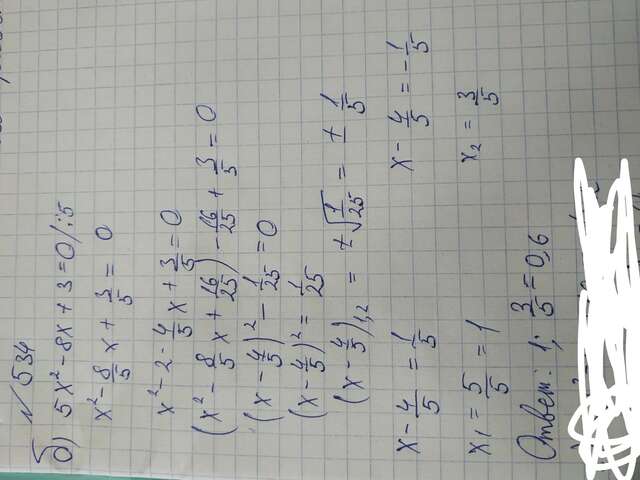 № 534
б) 5x² - 8x + 3 = 0 /:5
x² - 8/5 x + 3/5 = 0
x² - 2 · 4/5 x + 3/5 = 0
(x² - 8/5 x + 16/25) - 16/25 + 3/5 = 0
(x - 4/5)² - 1/25 = 0
(x - 4/5)² = 1/25
(x - 4/5)₁,₂ = ±√1/25 = ± 1/5
x - 4/5 = 1/5 x - 4/5 = -1/5
x₁ = 5/5 = 1 x₂ = 3/5
Ответ: 1; 3/5 = 0,6